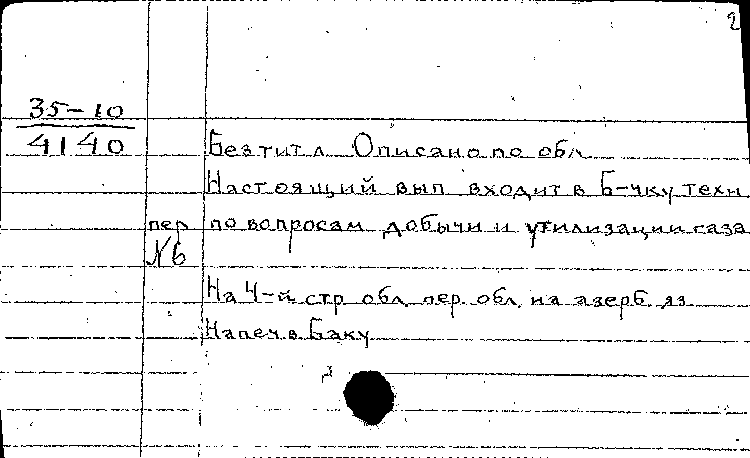 2
35-10
4140
Без тит л Описано по обл
Настоящий вып входит в б-чку техн
пер по вопросам добычи и утилизации газа
№6
На 4-й стр обл пер обл на азерб яз
Напеч в Баку